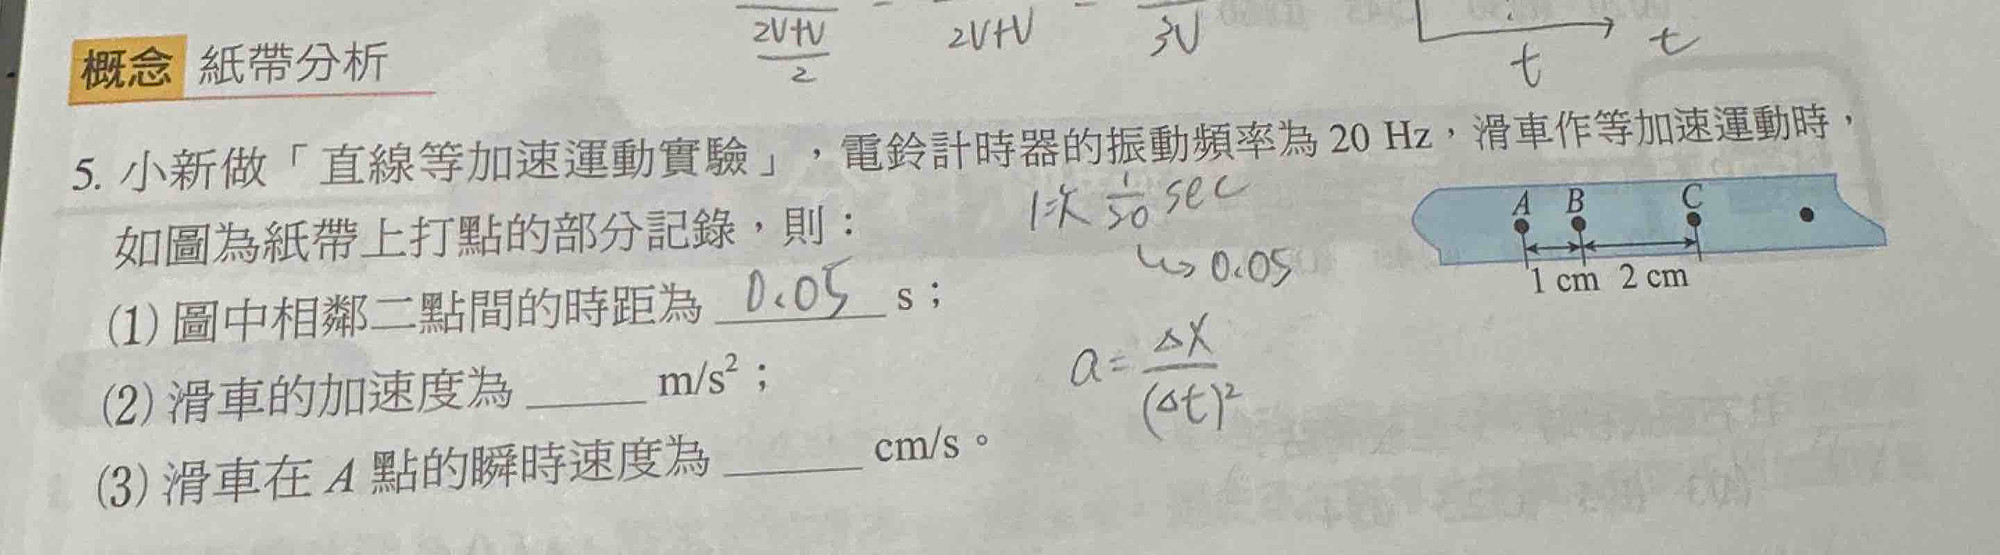 2V+V 2V+V 3V t t
2
概念 紙帶分析
5. 小新做「直線等加速運動實驗」，電鈴計時器的振動頻率為 20 Hz，滑車作等加速運動時，
如圖為紙帶上打點的部分記錄，則：
1次 1/20 sec
↳ 0.05
A B C
1 cm 2 cm
(1) 圖中相鄰二點間的時距為 0.05 s；
(2) 滑車的加速度為 ____ m/s²；
a = ΔX/(Δt)²
(3) 滑車在 A 點的瞬時速度為 ____ cm/s。